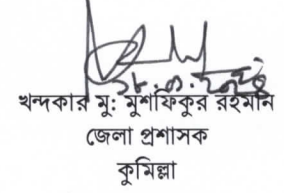 খন্দকার মু: মুশফিকুর রহমান
জেলা প্রশাসক
কুমিল্লা